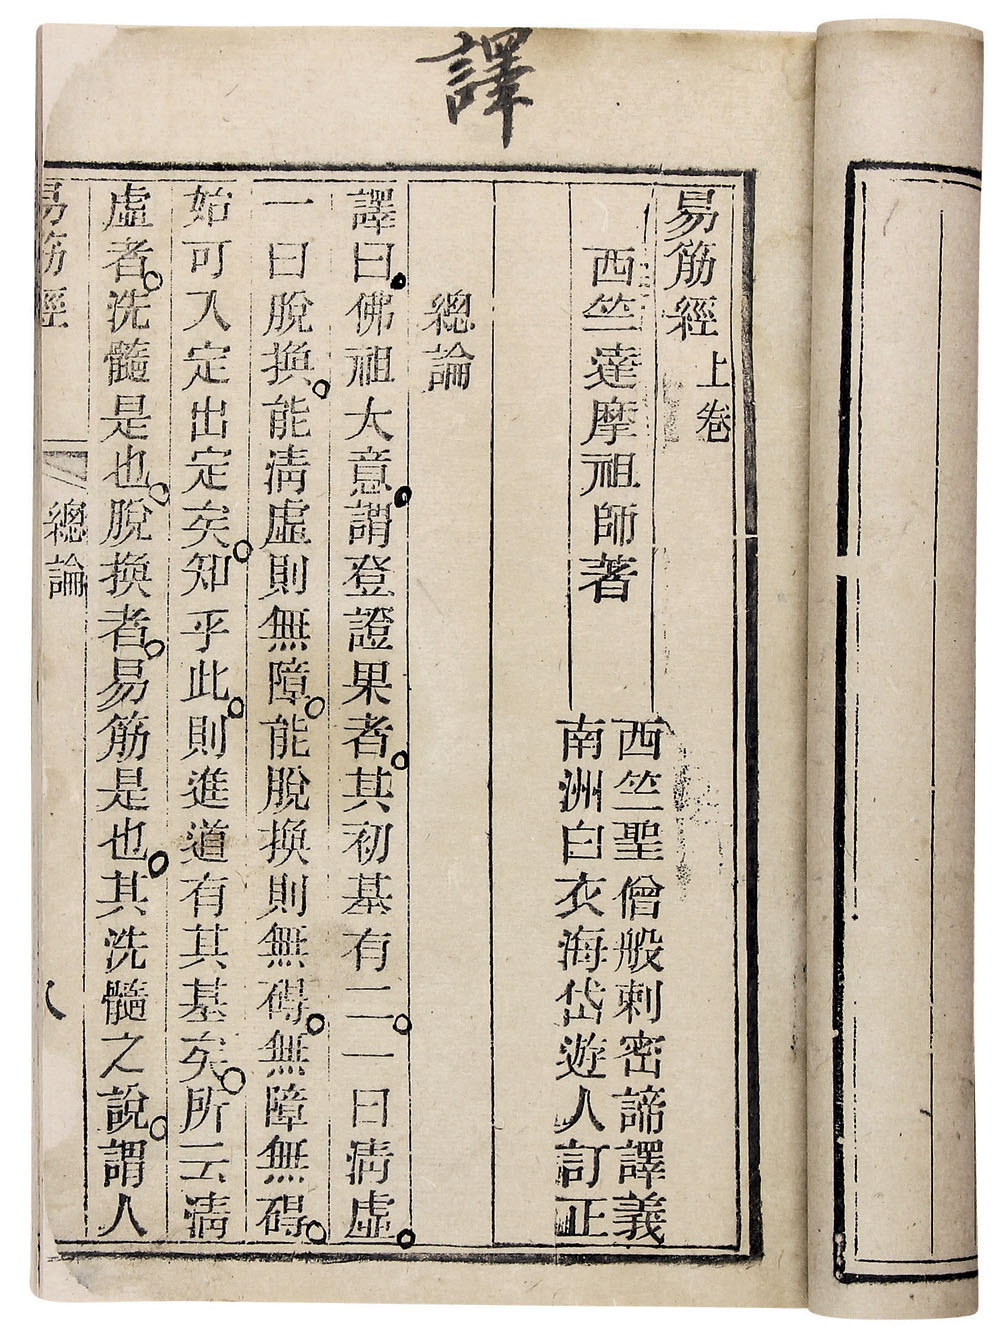 譯
易筋經上卷
西竺達摩祖師著
西竺聖僧般剌密諦譯義
南洲白衣海岱遊人訂正
總論
譯曰佛祖大意謂登證果者其初基有二一曰淸虛
一曰脫換能淸虛則無障能脫換則無碍無障無碍
始可入定出定矣知乎此則進道有其基矣所云淸
虛者洗髓是也脫換者易筋是也其洗髓之說謂人
易筋經 總論 八